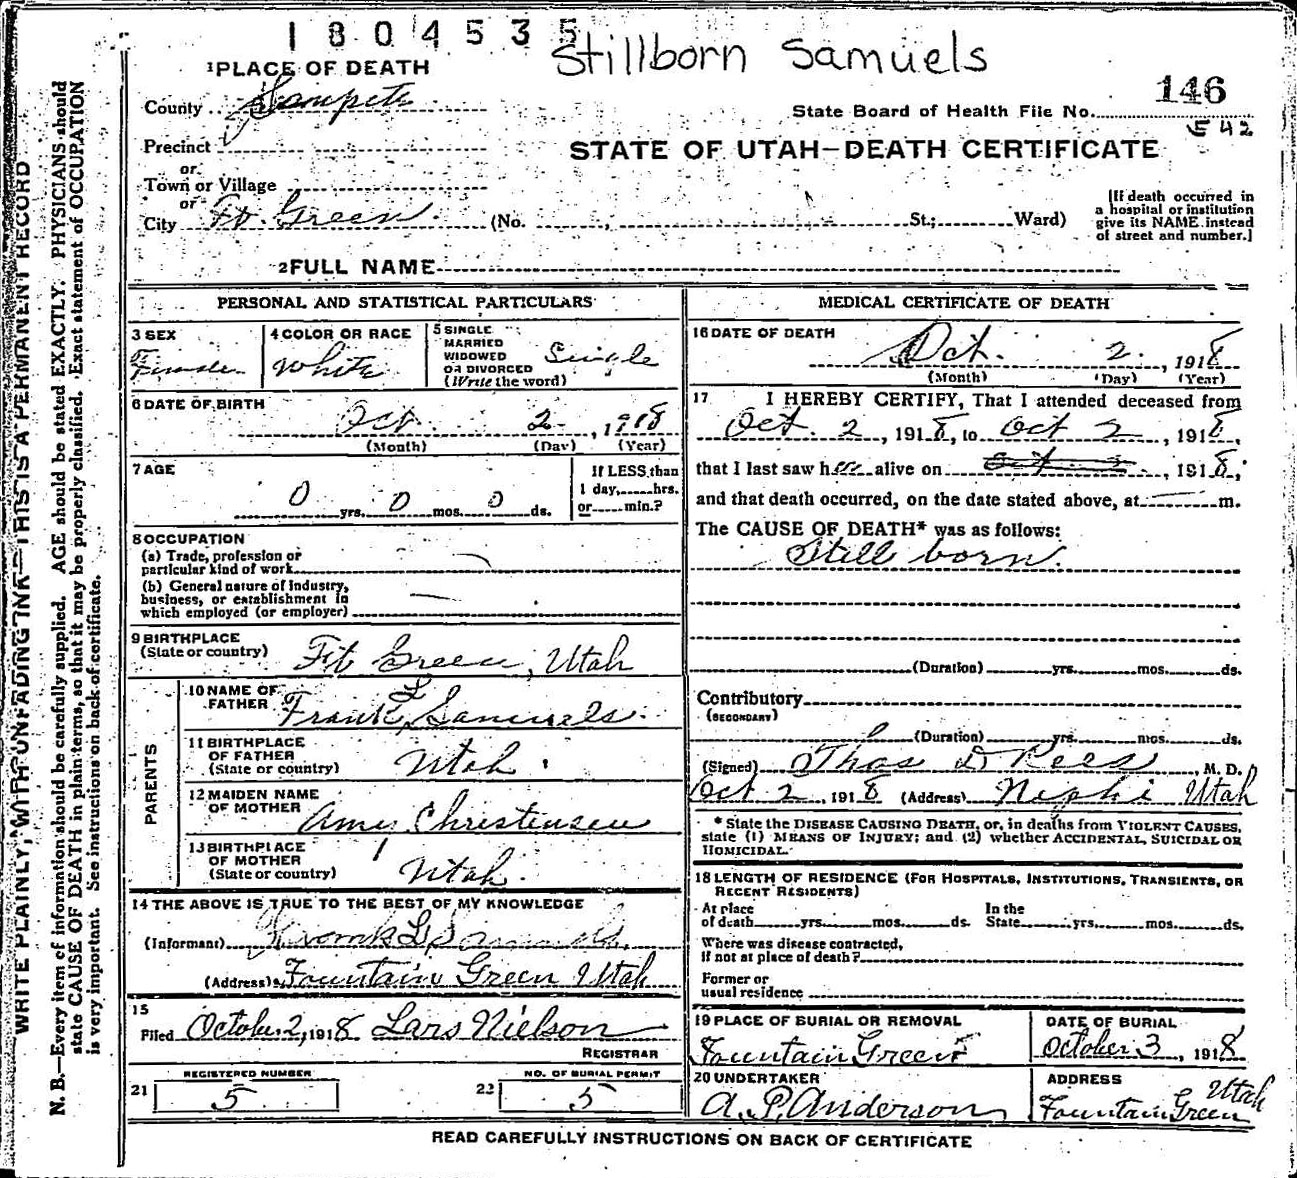 1804535
Stillborn Samuels
1 PLACE OF DEATH
County Sanpete
146
State Board of Health File No.
542
Precinct
or
Town or Village
or
City Ft. Green (No. , St.; Ward)
STATE OF UTAH—DEATH CERTIFICATE
[If death occurred in
a hospital or institution
give its NAME instead
of street and number.]
2 FULL NAME
PERSONAL AND STATISTICAL PARTICULARS
3 SEX
4 COLOR OR RACE
White
5 SINGLE
MARRIED
WIDOWED
OR DIVORCED
(Write the word)
Single
6 DATE OF BIRTH
Oct. 2, 1918
(Month) (Day) (Year)
7 AGE
0 yrs. 0 mos. 0 ds.
If LESS than
1 day, hrs.
or min.?
8 OCCUPATION
(a) Trade, profession or
particular kind of work
(b) General nature of industry,
business, or establishment in
which employed (or employer)
9 BIRTHPLACE
(State or country)
Ft Green, Utah
PARENTS
10 NAME OF
FATHER
Frank L Samuels.
11 BIRTHPLACE
OF FATHER
(State or country)
Utah
12 MAIDEN NAME
OF MOTHER
Christensen
13 BIRTHPLACE
OF MOTHER
(State or country)
Utah.
14 THE ABOVE IS TRUE TO THE BEST OF MY KNOWLEDGE
(Informant) Frank L Samuels.
(Address) Fountain Green Utah
15
Filed October 2, 1918 Lars Nielson
REGISTRAR
REGISTERED NUMBER
21 5
NO. OF BURIAL PERMIT
22 5
MEDICAL CERTIFICATE OF DEATH
16 DATE OF DEATH
Oct. 2., 1918
(Month) (Day) (Year)
17 I HEREBY CERTIFY, That I attended deceased from
Oct. 2, 1918, to Oct 2, 1918,
that I last saw her alive on , 1918,;
and that death occurred, on the date stated above, at m.
The CAUSE OF DEATH* was as follows:
Still born.
(Duration) yrs. mos. ds.
Contributory
(SECONDARY)
(Duration) yrs. mos. ds.
(Signed) Thos D Rees, M. D.
Oct 2, 1918 (Address) Nephi Utah
* State the DISEASE CAUSING DEATH, or, in deaths from VIOLENT CAUSES,
state (1) MEANS OF INJURY; and (2) whether ACCIDENTAL, SUICIDAL OR
HOMICIDAL.
18 LENGTH OF RESIDENCE (FOR HOSPITALS, INSTITUTIONS, TRANSIENTS, OR
RECENT RESIDENTS)
At place
of death yrs. mos. ds.
In the
State yrs. mos. ds.
Where was disease contracted,
if not at place of death?
Former or
usual residence
19 PLACE OF BURIAL OR REMOVAL
Fountain Green
DATE OF BURIAL
October 3, 1918
20 UNDERTAKER
A. P. Anderson
ADDRESS
Utah
Fountain Green
READ CAREFULLY INSTRUCTIONS ON BACK OF CERTIFICATE
WRITE PLAINLY, WITH UNFADING INK—THIS IS A PERMANENT RECORD
N. B.—Every item of information should be carefully supplied. AGE should be stated EXACTLY. PHYSICIANS should
state CAUSE OF DEATH in plain terms, so that it may be properly classified. Exact statement of OCCUPATION
is very important. See instructions on back of certificate.